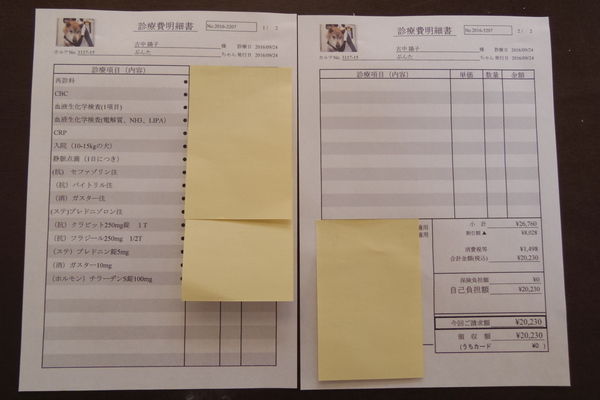 診療費明細書
No.2016-3207
1 / 2
古中 陽子 様 診療日 2016/09/24
カルテNo. 3117-15 ぶんた ちゃん 発行日 2016/09/24
診療項目（内容）
再診料
CBC
血液生化学検査(1項目)
血液生化学検査(電解質、NH3、LIPA)
CRP
入院（10-15kgの犬）
静脈点滴（1日につき）
(抗) セファゾリン注
（抗）バイトリル注
（消）ガスター注
(ステ)プレドニゾロン注
（抗）クラビット250mg錠 1T
（抗）フラジール250mg 1/2T
（ステ）プレドニン錠5mg
（消）ガスター10mg
（ホルモン）チラーヂンS錠100mg
診療費明細書
No.2016-3207
2 / 2
古中 陽子 様 診療日 2016/09/24
カルテNo. 3117-15 ぶんた ちゃん 発行日 2016/09/24
診療項目（内容） 単価 数量 金額
小 計 ¥26,760
割引額 ▲ ¥8,028
消費税等 ¥1,498
合計金額(税込) ¥20,230
保険負担額 ¥0
自己負担額 ¥20,230
今回ご請求額 ¥20,230
領 収 額 ¥20,230
(うちカード ¥0 )